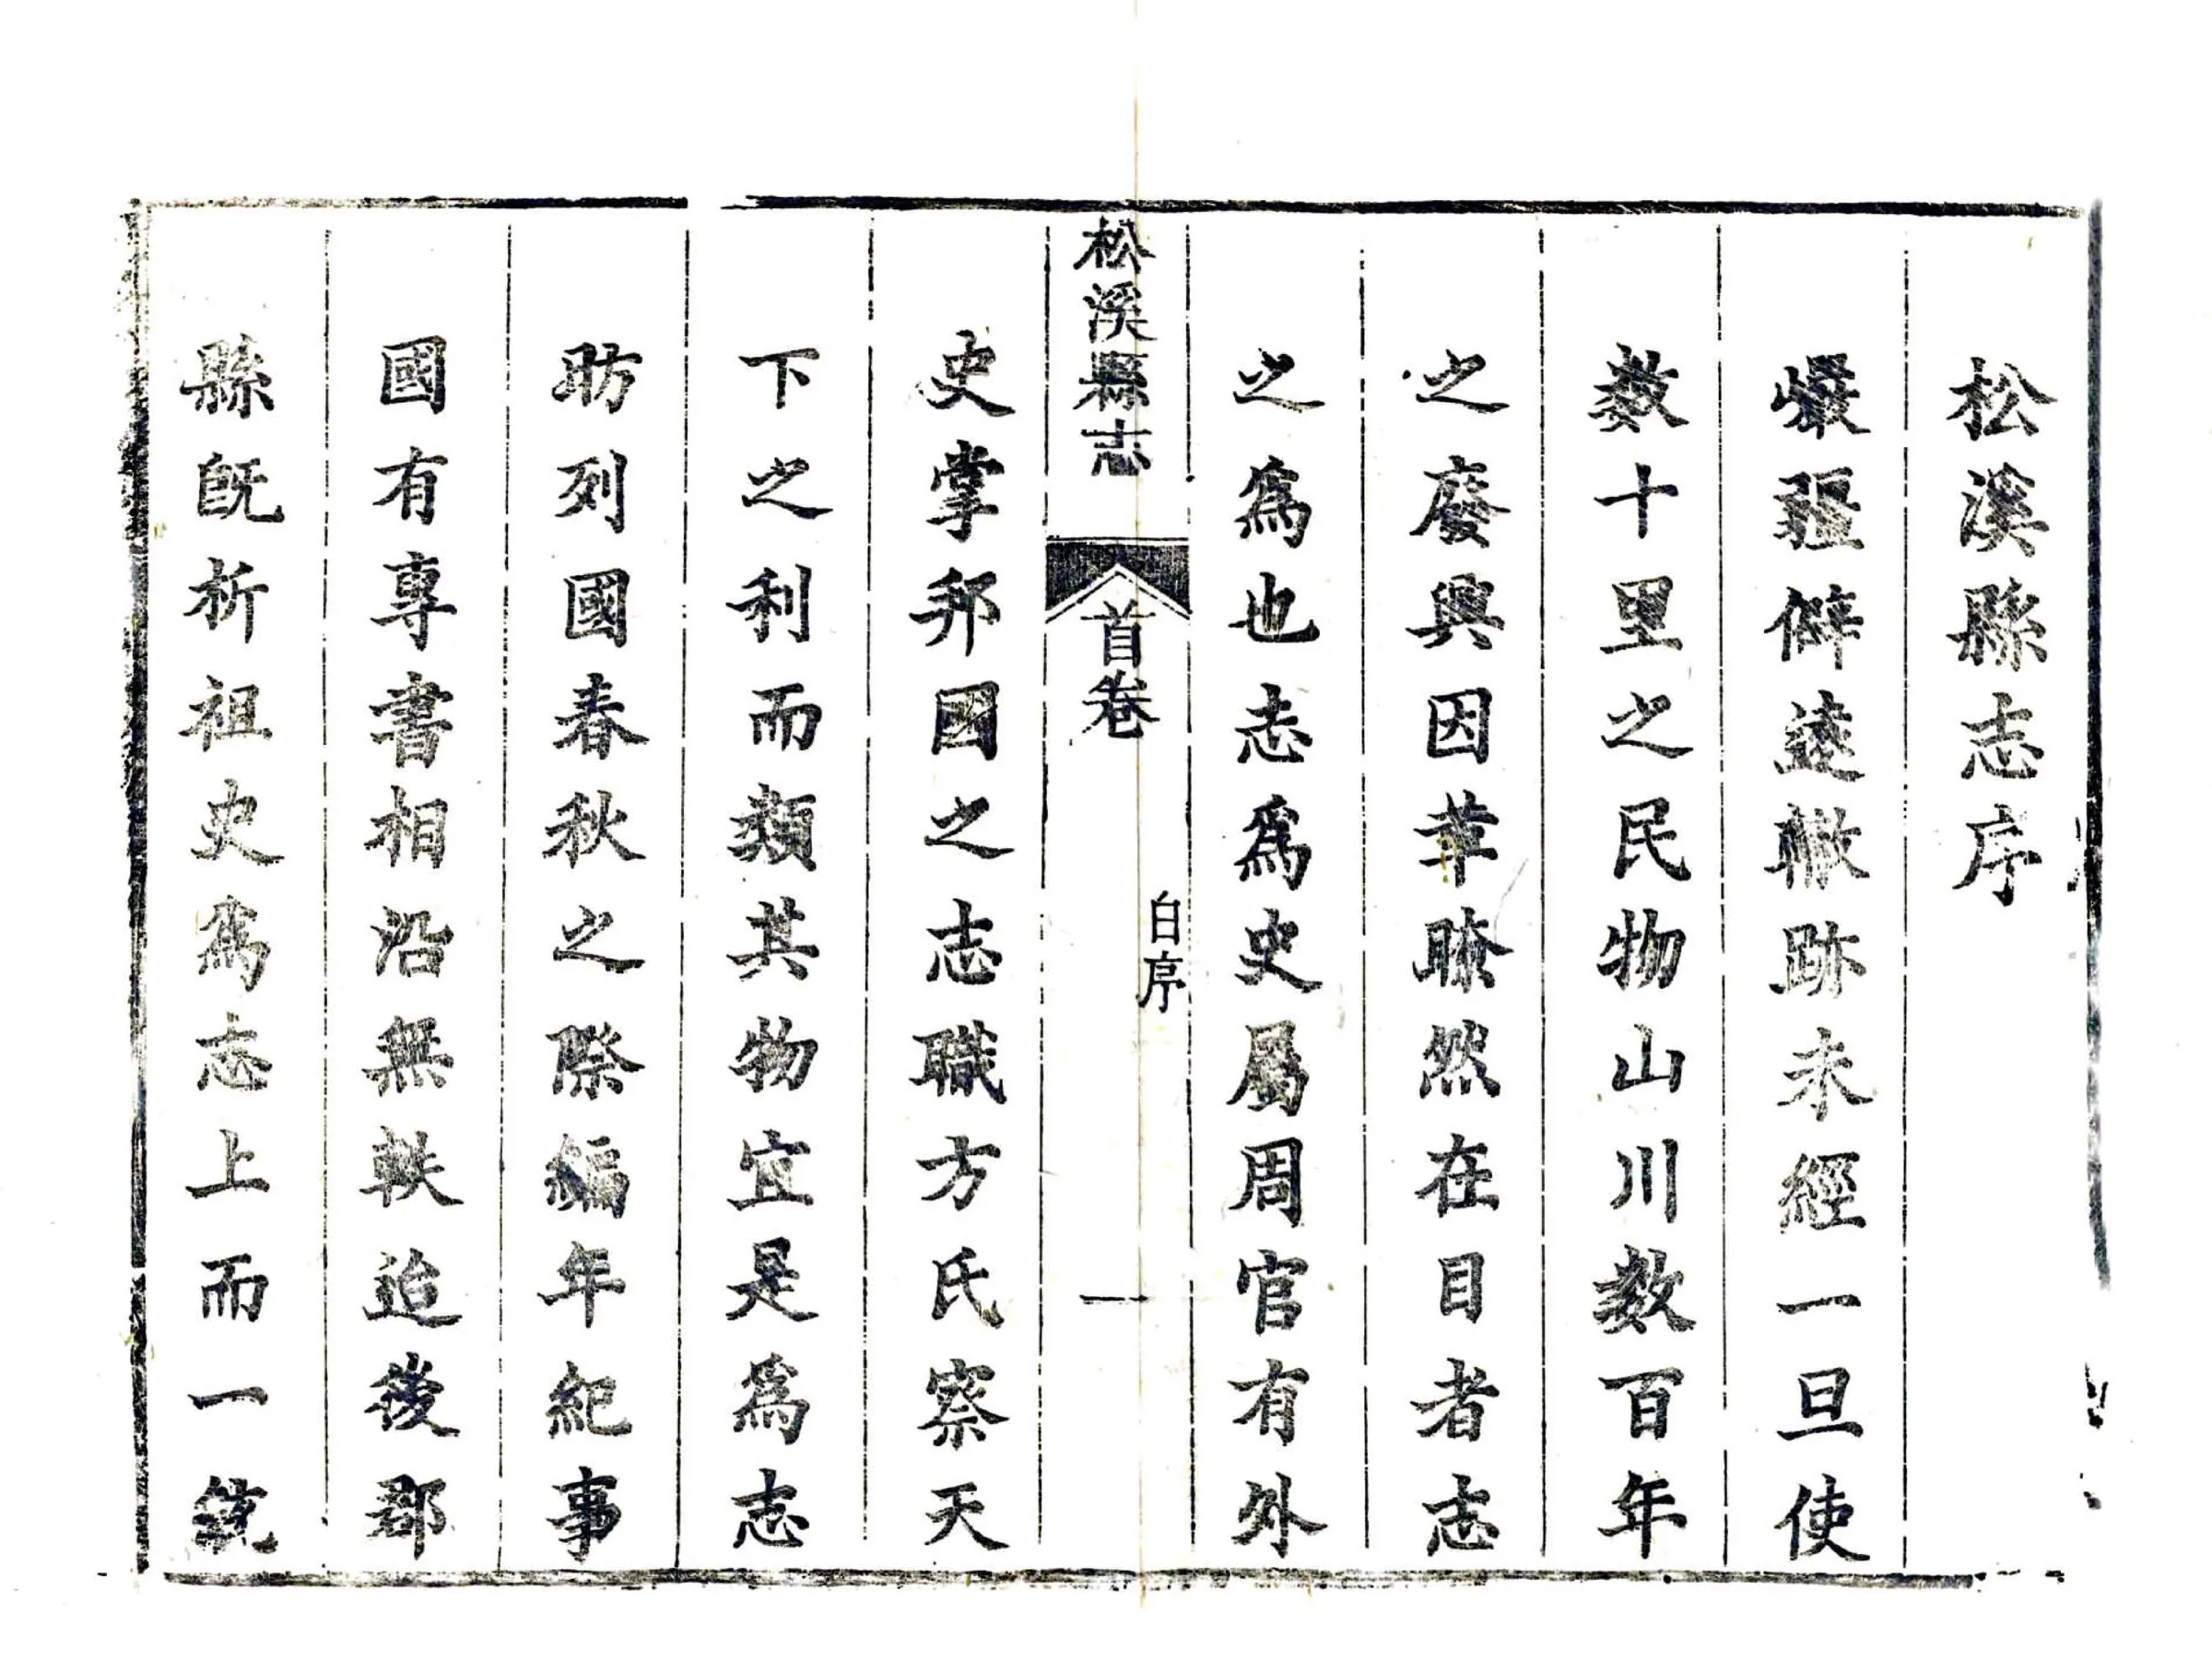 松溪縣志序
巖疆僻遠轍跡未經一旦使
數十里之民物山川數百年
之廢興因革瞭然在目者志
之爲也志爲史屬周官有外
松溪縣志
首卷
自序
一
史掌邦國之志職方氏察天
下之利而類其物宜是爲志
昉列國春秋之際編年紀事
國有專書相沿無軼迨後郡
縣旣析祖史爲志上而一統